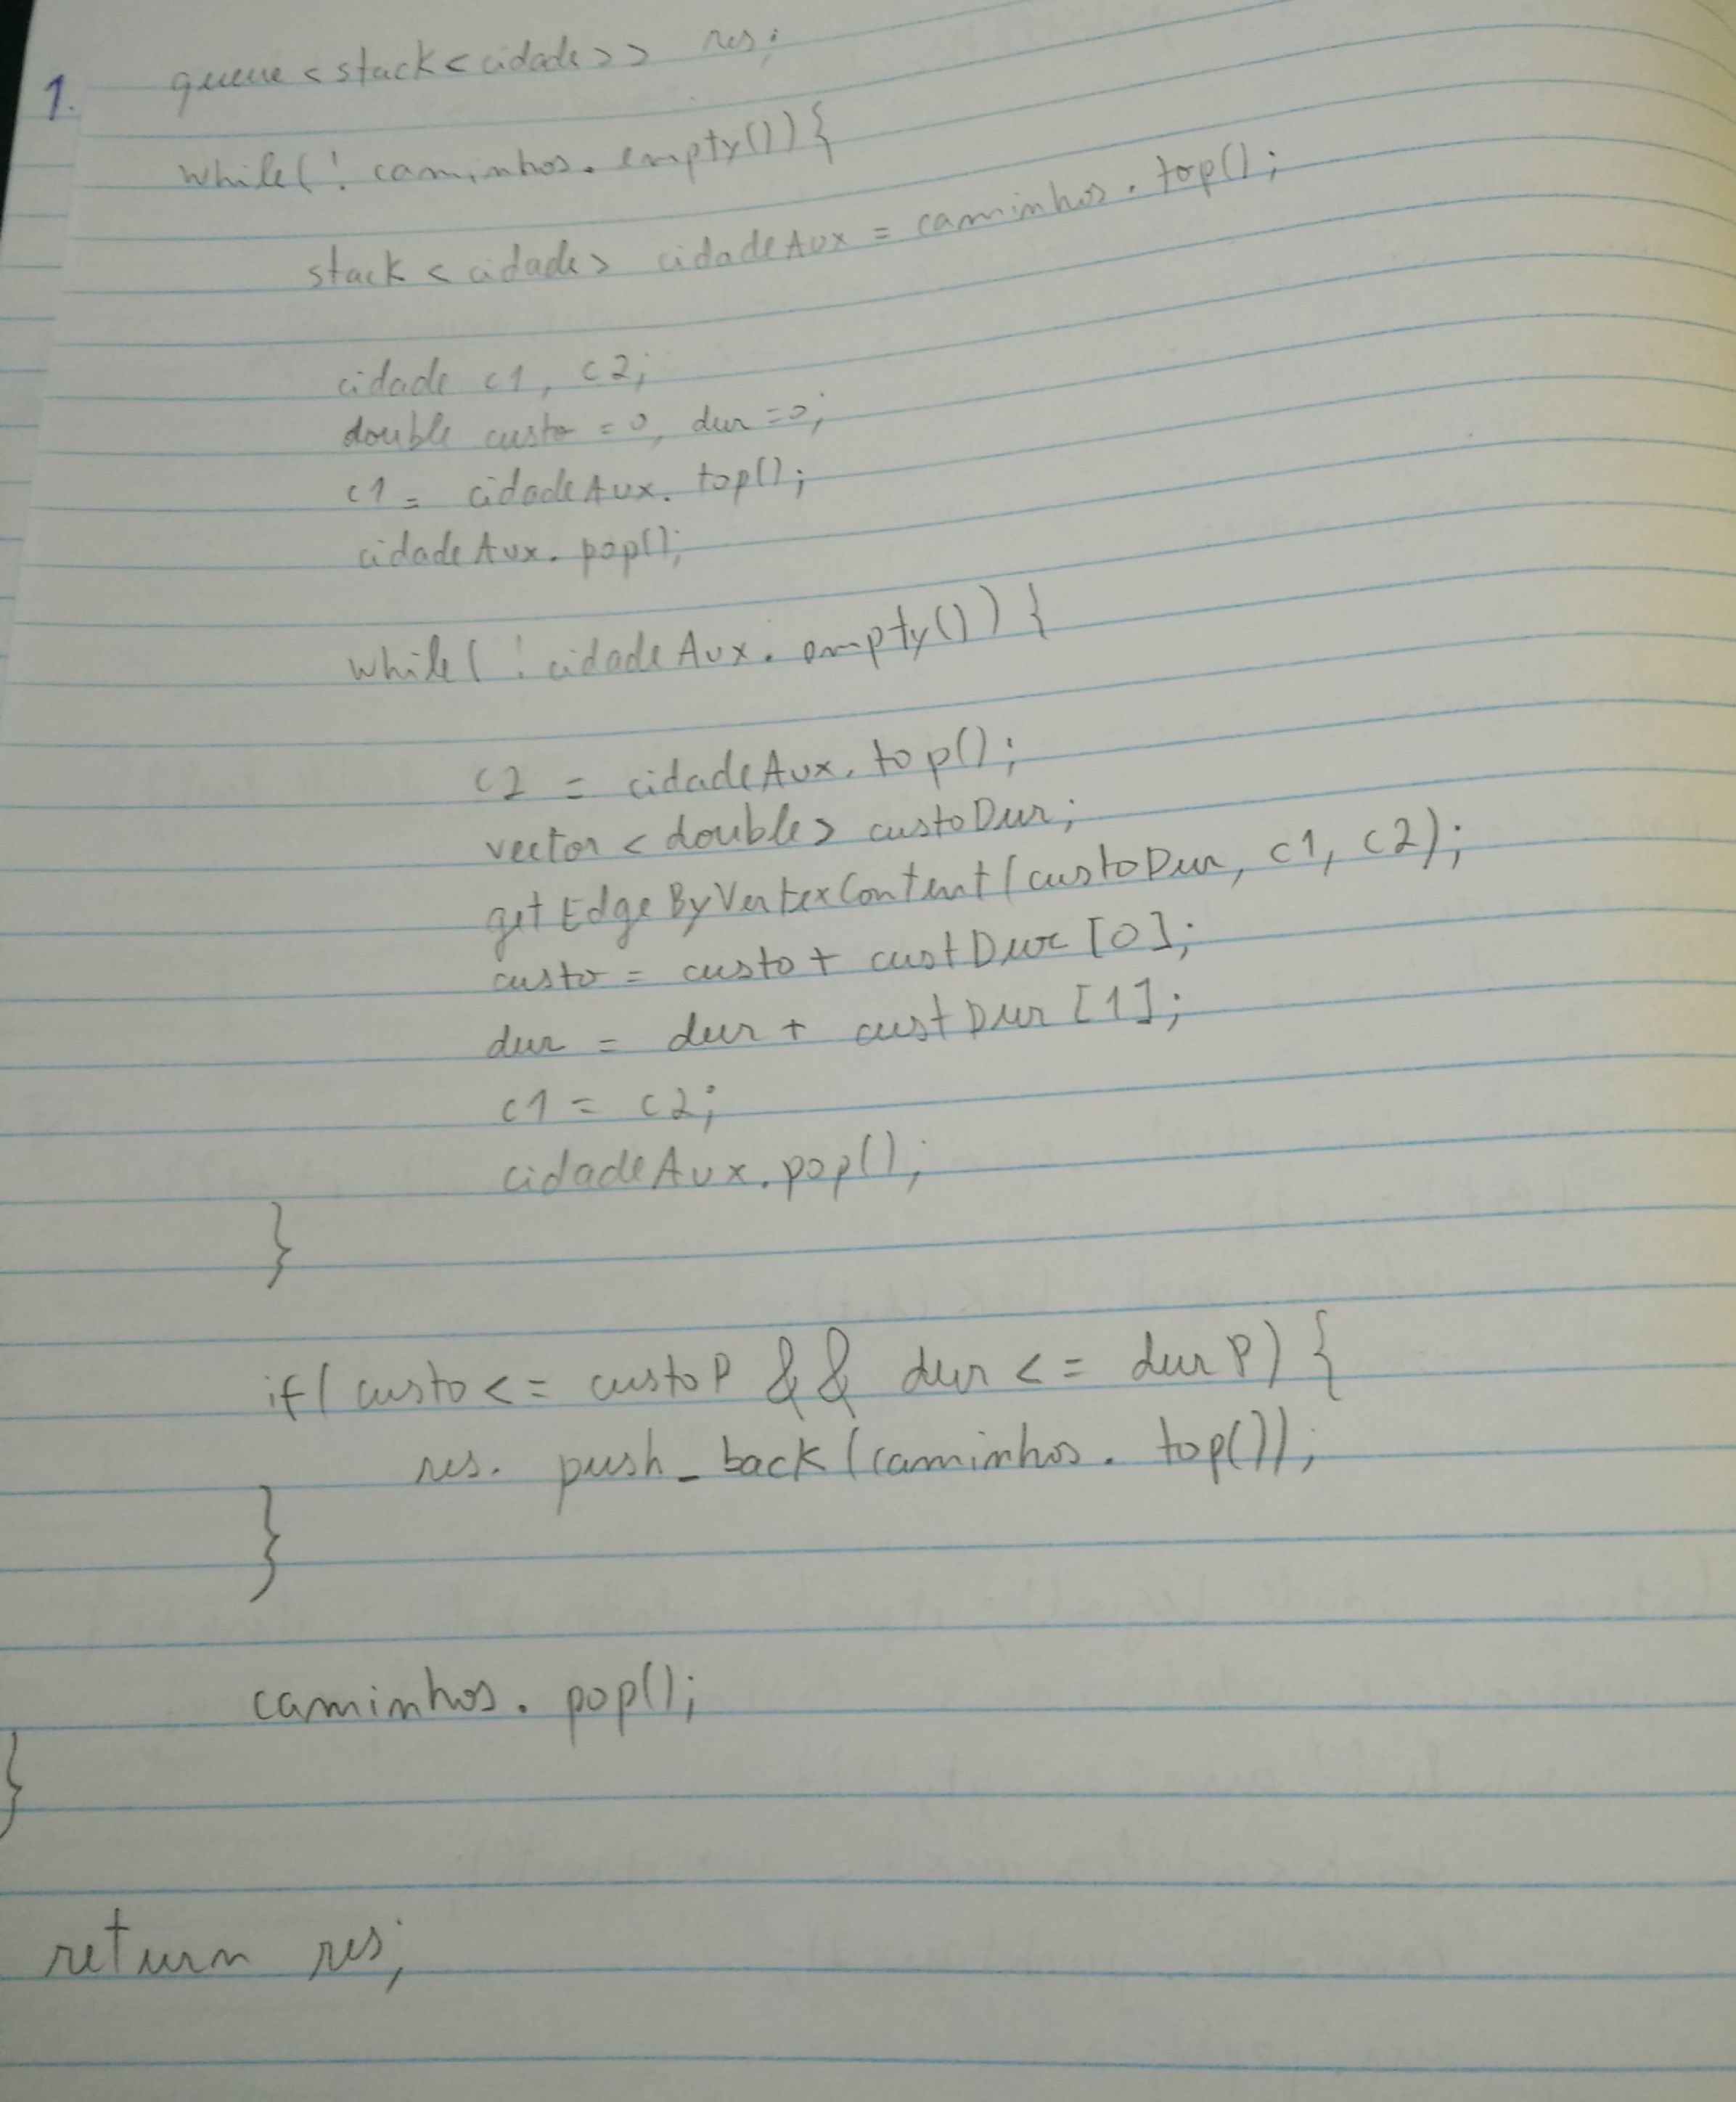 1. queue < stack < cidade >> res;
while(! caminhos. empty()){
stack < cidade > cidadeAux = caminhos. top();
cidade c1, c2;
double custo = 0, dur = 0;
c1 = cidadeAux. top();
cidadeAux. pop();
while(! cidadeAux. empty()){
c2 = cidadeAux. top();
vector < double > custoDur;
getEdgeByVertexContent(custoDur, c1, c2);
custo = custo + custDur [0];
dur = dur + custDur [1];
c1 = c2;
cidadeAux. pop();
}
if( custo <= custoP && dur <= durP) {
res. push_back (caminhos. top());
}
caminhos. pop();
}
return res;